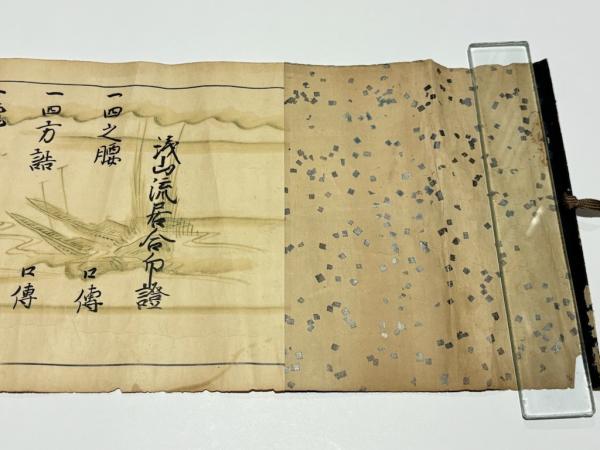 淺山流居合印證
一四之腰
口傳
一四方詰
口傳